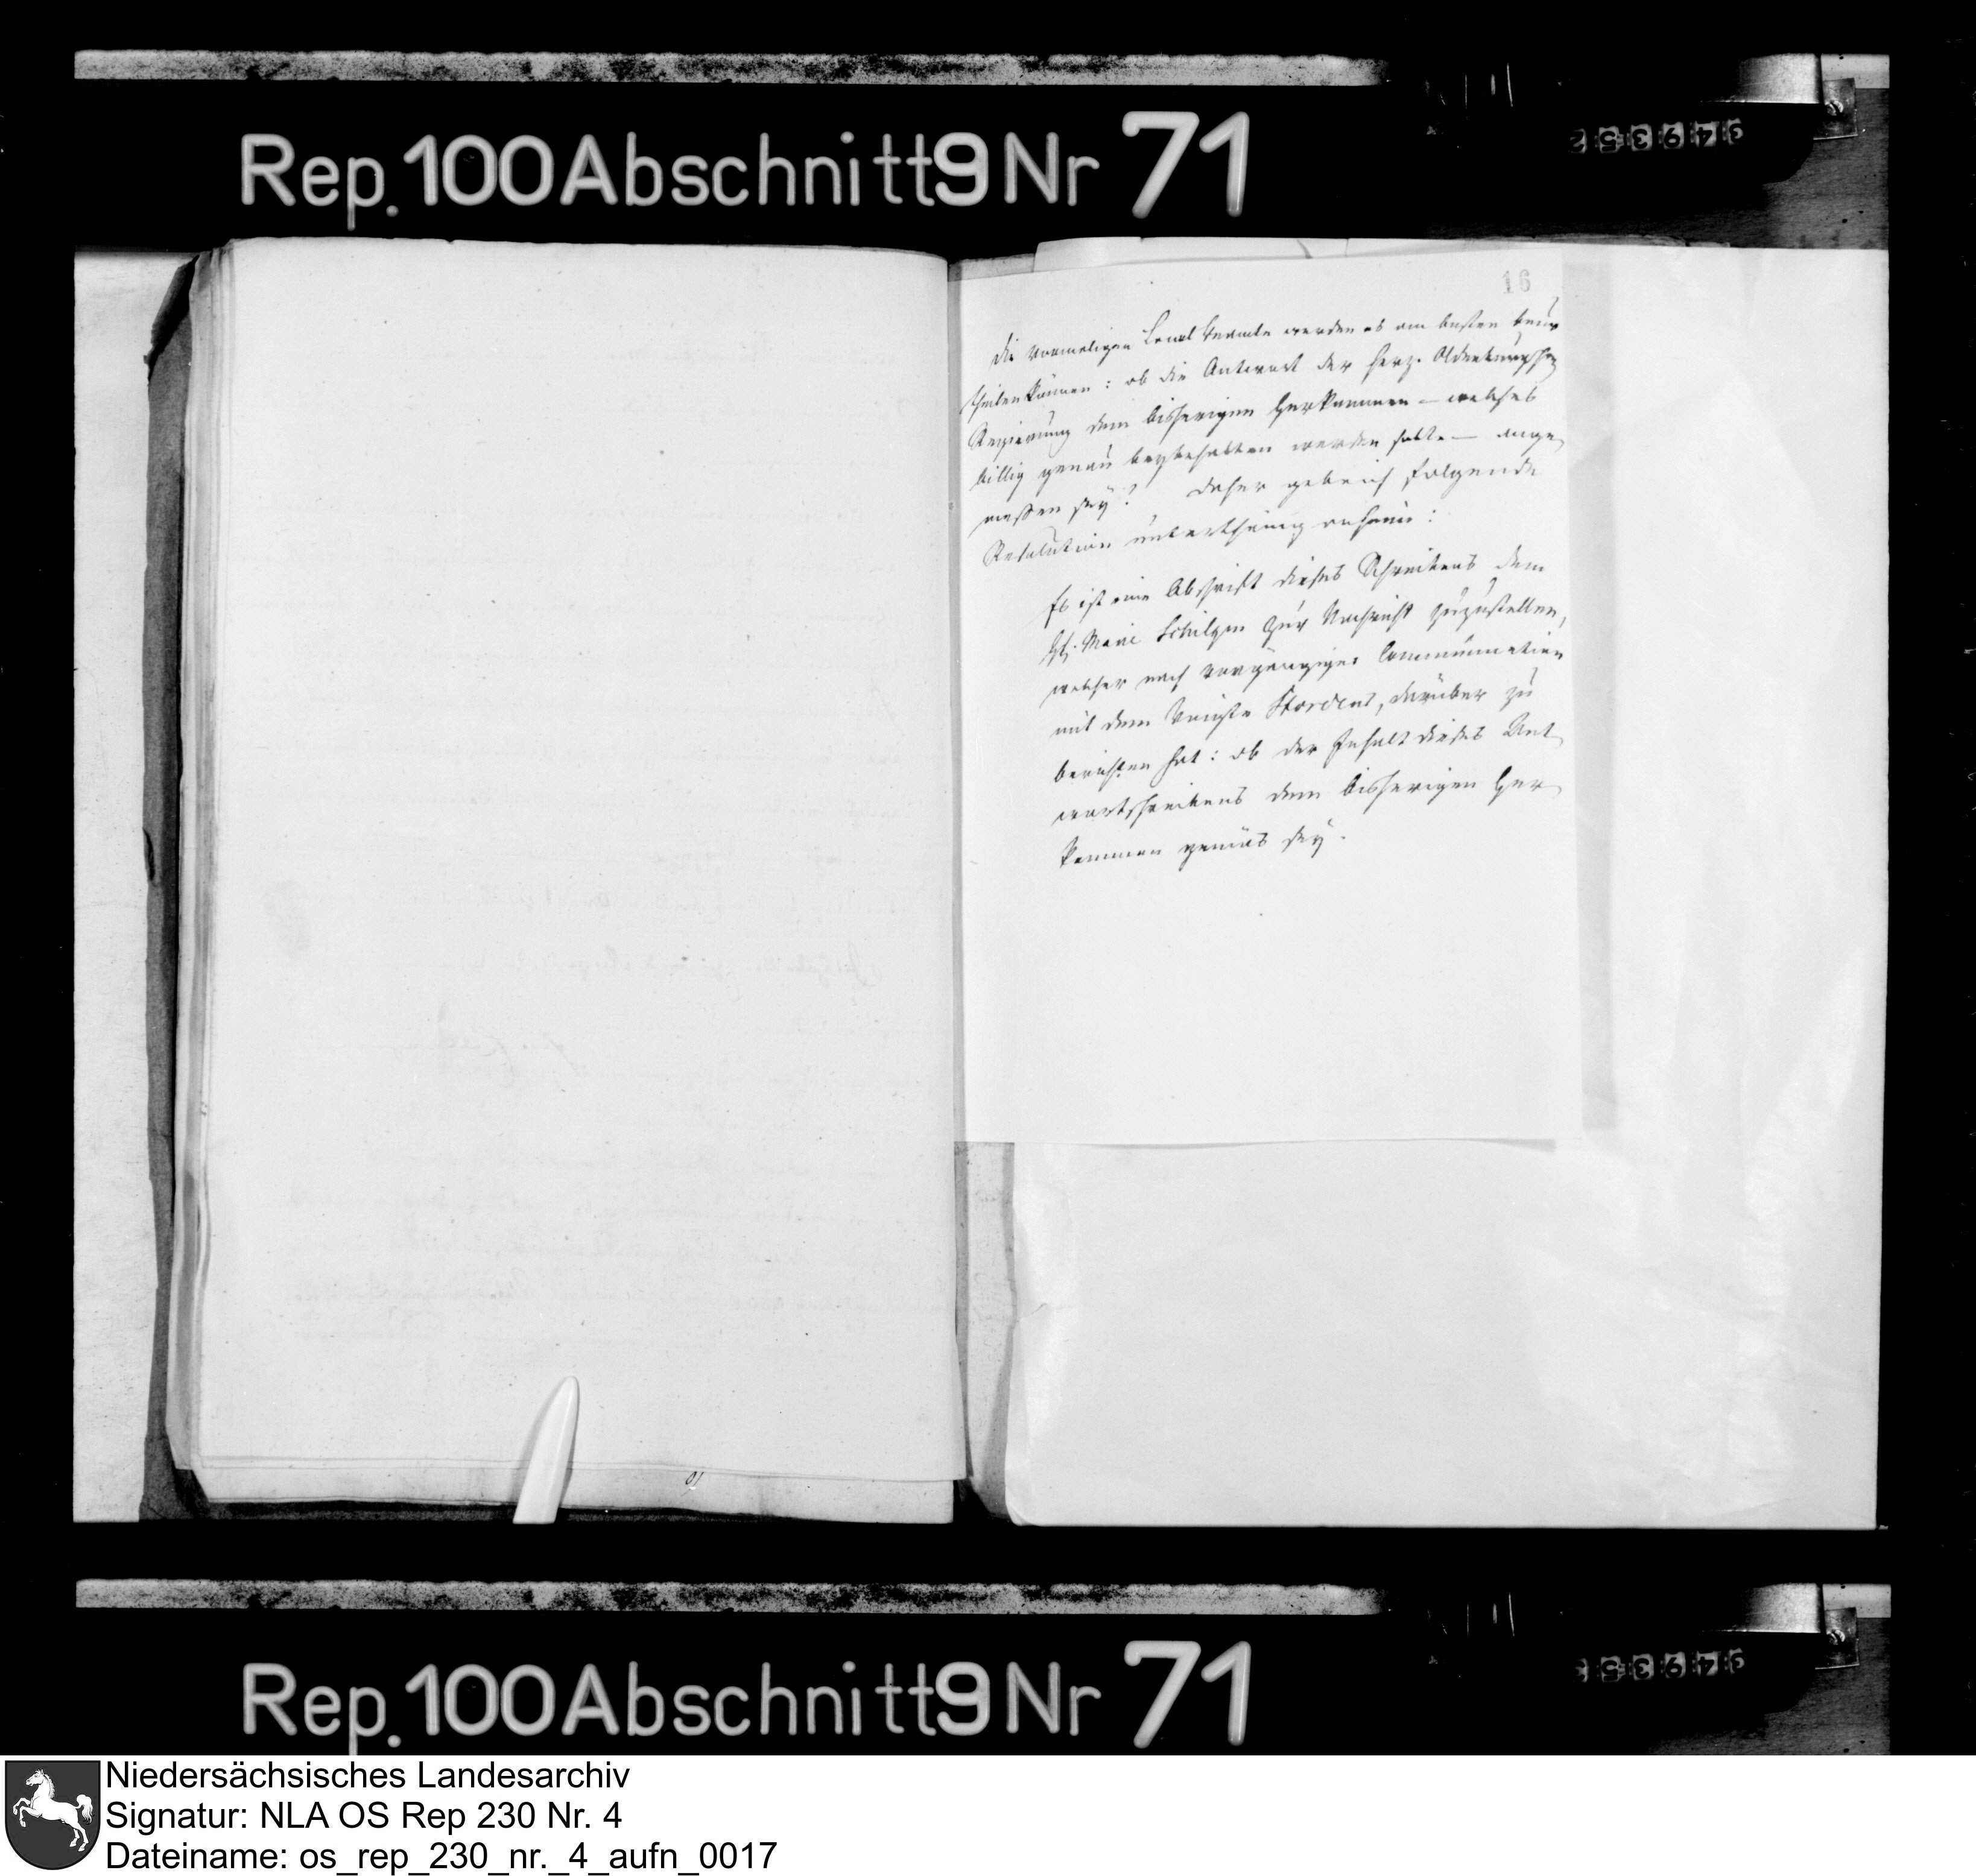 Rep. 100 Abschnitt 9 Nr 71
16
Die vormaligen Local Beamte werden es am besten beur
theilen können: ob die Antwort der Herz. Oldenburgschen
Regierung dem bisherigen Herkommen – welches
billig genau beybehalten werden sollte – ange
messen sey? Daher gebe ich folgende
Resolution unterthänig anheim:
Es ist eine Abschrift dieses Schreibens dem
Schilgen zur Nachricht zuzustellen,
welcher nach vorgängiger Communication
mit dem Vaigte Stordeus, darüber zu
berichten hat: ob der Inhalt dieses Ant
wortschreibens dem bisherigen Her
kommen gemäs sey.
Rep. 100 Abschnitt 9 Nr 71
Niedersächsisches Landesarchiv
Signatur: NLA OS Rep 230 Nr. 4
Dateiname: os_rep_230_nr._4_aufn_0017